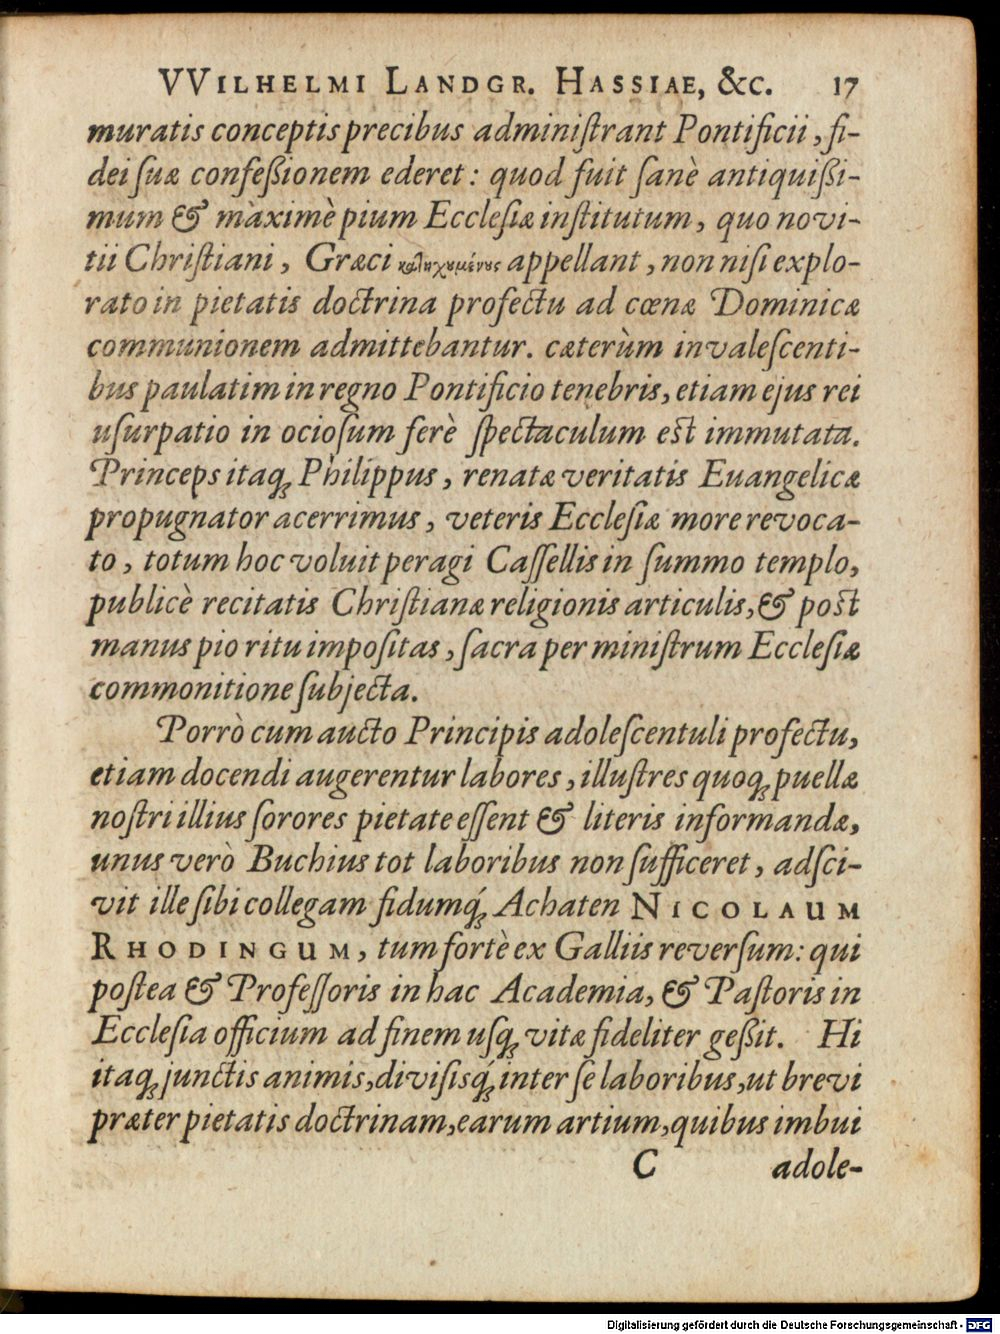 VVILHELMI LANDGR. HASSIAE, &C. 17
muratis conceptis precibus adminiſtrant Pontificii, fi-
dei ſuæ confeßionem ederet: quod fuit ſanè antiquißi-
mum & màximè pium Eccleſiæ inſtitutum, quo novi-
tii Chriſtiani, Græci κατηχουμένους appellant, non niſi explo-
rato in pietatis doctrina profectu ad cœnæ Dominicæ
communionem admittebantur. cæterùm invaleſcenti-
bus paulatim in regno Pontificio tenebris, etiam ejus rei
uſurpatio in ocioſum ferè ſpectaculum est immutata.
Princeps itaq; Philippus, renatæ veritatis Euangelicæ
propugnator acerrimus, veteris Eccleſiæ more revoca-
to, totum hoc voluit peragi Caſſellis in ſummo templo,
publicè recitatis Chriſtianæ religionis articulis, & post
manus pio ritu impoſitas, ſacra per miniſtrum Eccleſiæ
commonitione ſubjecta.
Porrò cum aucto Principis adoleſcentuli profectu,
etiam docendi augerentur labores, illuſtres quoq; puellæ
noſtri illius ſorores pietate eſſent & literis informandæ,
unus verò Buchius tot laboribus non ſufficeret, adſci-
vit ille ſibi collegam fidumq́; Achaten NICOLAUM
RHODINGUM, tum fortè ex Galliis reverſum: qui
poſtea & Profeſſoris in hac Academia, & Paſtoris in
Eccleſia officium ad finem uſq; vitæ fideliter geßit. Hi
itaq; junctis animis, diviſisq́; inter ſe laboribus, ut brevi
præter pietatis doctrinam, earum artium, quibus imbui
C adole-
Digitalisierung gefördert durch die Deutsche Forschungsgemeinschaft - DFG